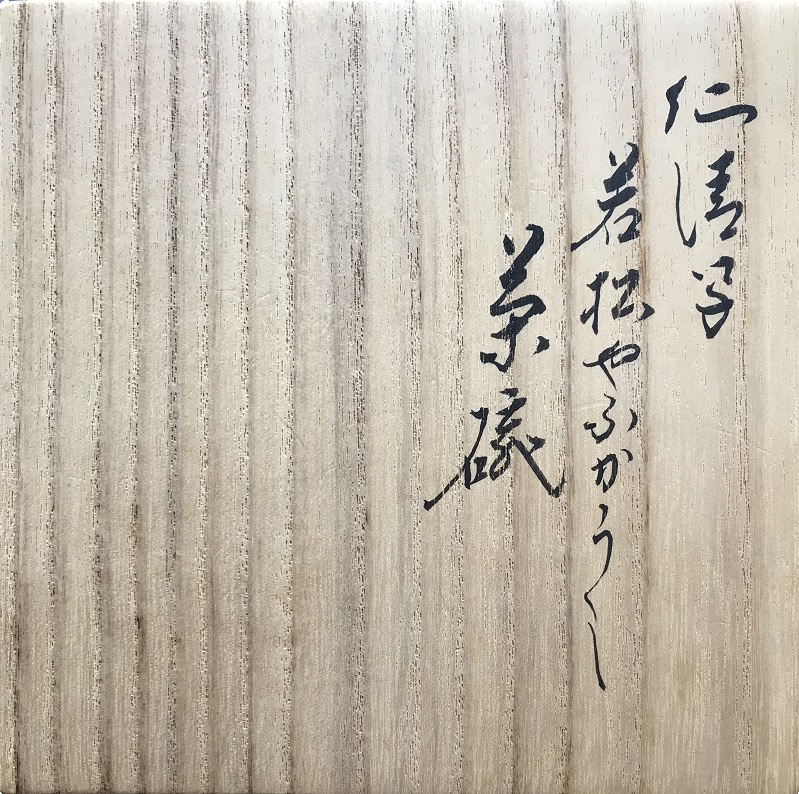 仁清写
若松やふかうし
茶碗